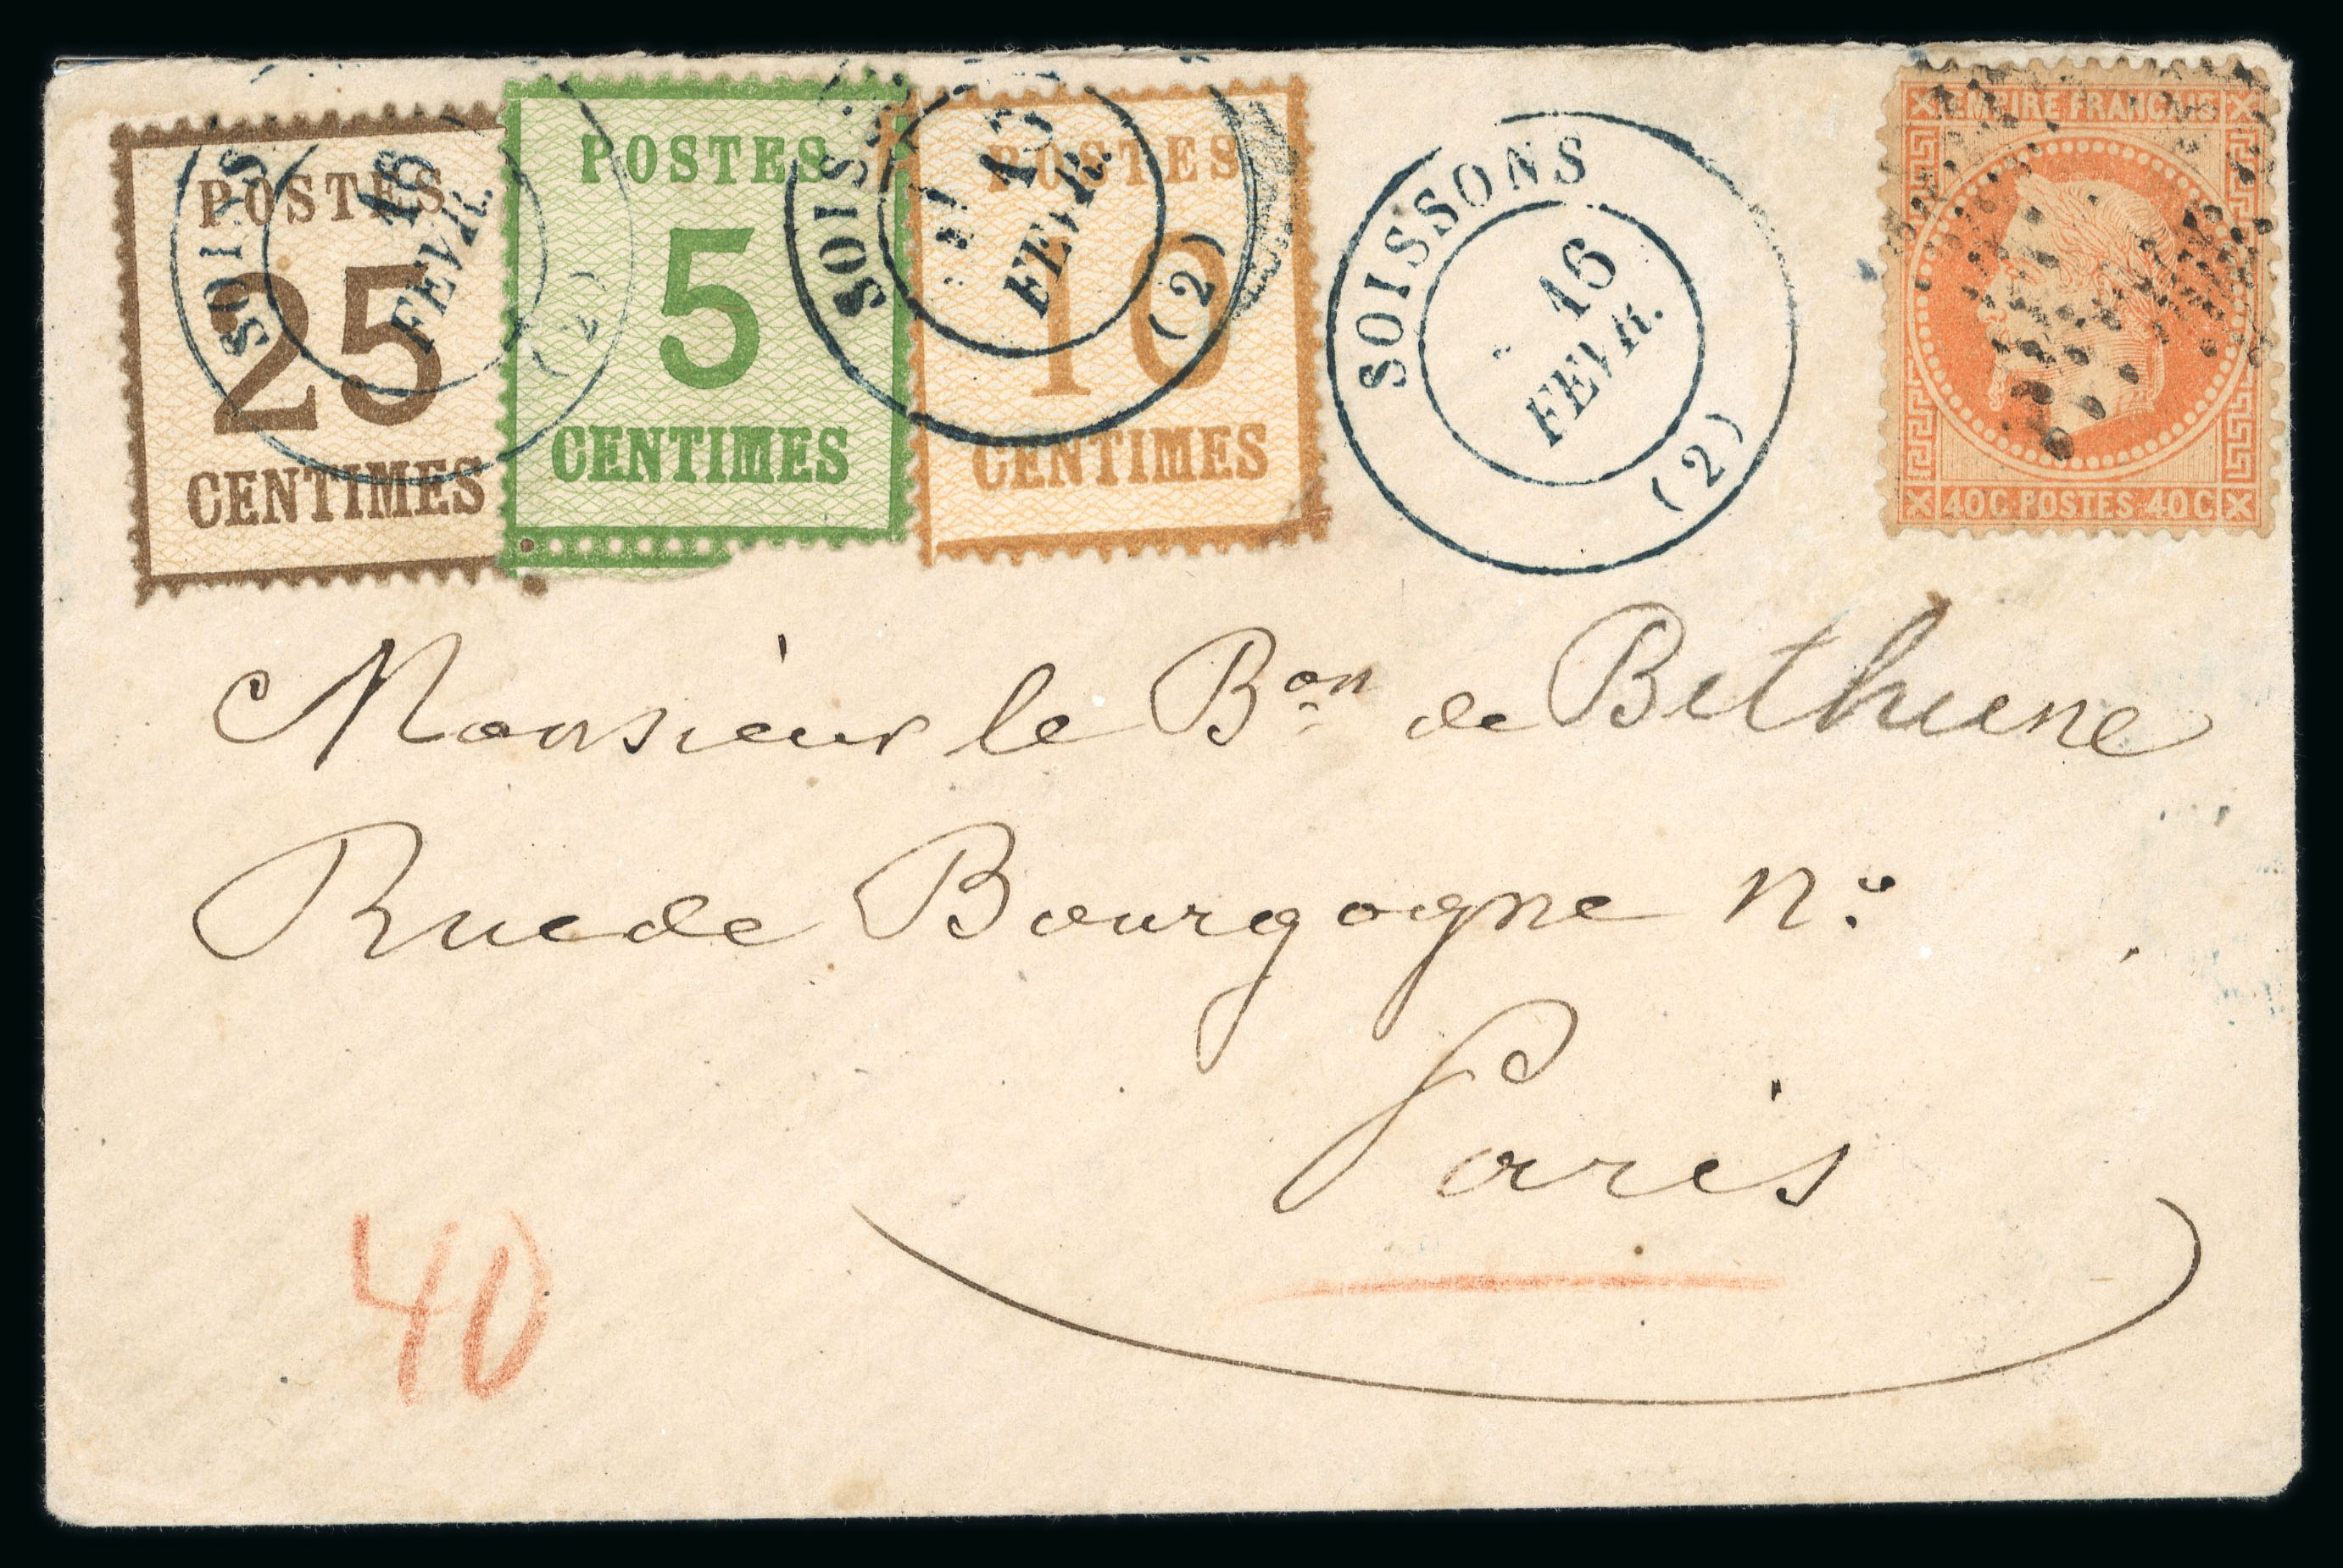 POSTES
25
CENTIMES
POSTES
5
CENTIMES
POSTES
10
CENTIMES
EMPIRE FRANÇAIS
40C POSTES 40C
SOIS
16
FEVR.
(2)
SOIS
16
FEVR.
(2)
SOISSONS
16
FEVR.
(2)
Monsieur le Bon de Bethune
Rue de Bourgogne No
Paris
40